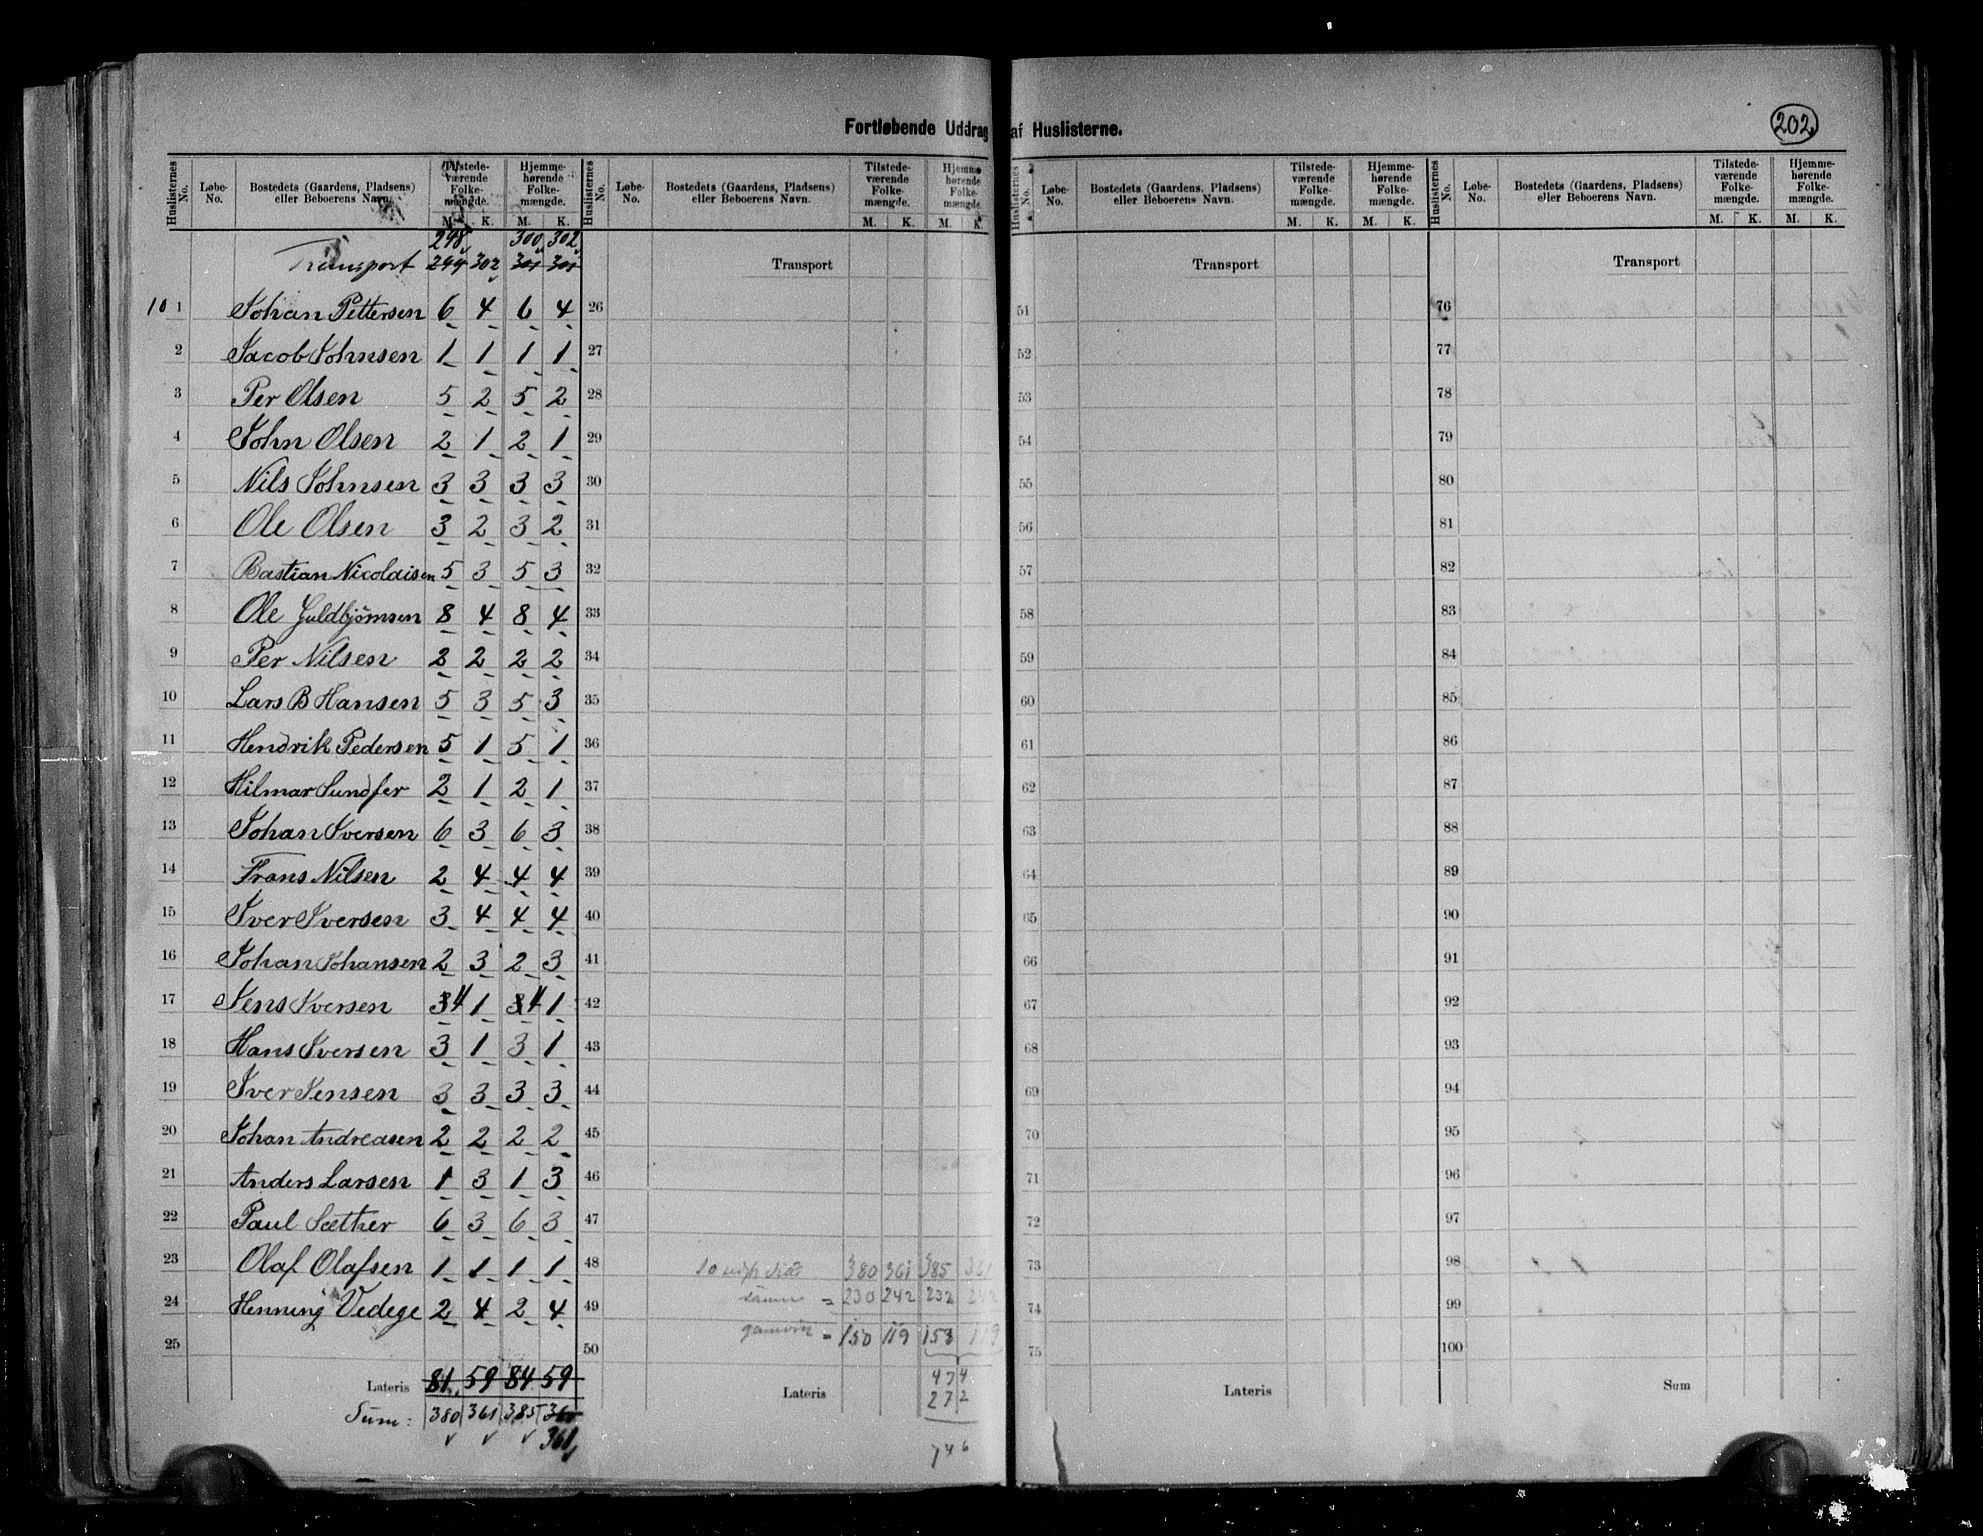 Fortløbende Uddrag af Huslisterne.
202
Huslisternes No. Løbe-No. Bostedets (Gaardens, Pladsens) eller Beboerens Navn. Tilstedeværende Folkemængde. M. K. Hjemmehørende Folkemængde. M. K.
Huslisternes No. Løbe-No. Bostedets (Gaardens, Pladsens) eller Beboerens Navn. Tilstedeværende Folkemængde. M. K. Hjemmehørende Folkemængde. M. K.
Huslisternes No. Løbe-No. Bostedets (Gaardens, Pladsens) eller Beboerens Navn. Tilstedeværende Folkemængde. M. K. Hjemmehørende Folkemængde. M. K.
Huslisternes No. Løbe-No. Bostedets (Gaardens, Pladsens) eller Beboerens Navn. Tilstedeværende Folkemængde. M. K. Hjemmehørende Folkemængde. M. K.
298 300 302
Transport 299 302 301 301
10 1 Johan Pettersen 6 4 6 4
2 Jacob Johnsen 1 1 1 1
3 Per Olsen 5 2 5 2
4 John Olsen 2 1 2 1
5 Nils Johnsen 3 3 3 3
6 Ole Olsen 3 2 3 2
7 Bastian Nicolaisen 5 3 5 3
8 Ole Guldbjørnsen 8 4 8 4
9 Per Nilsen 2 2 2 2
10 Lars B Hansen 5 3 5 3
11 Hendrik Pedersen 5 1 5 1
12 Hilmar Sundfer 2 1 2 1
13 Johan Iversen 6 3 6 3
14 Frans Nilsen 2 4 4 4
15 Iver Iversen 3 4 4 4
16 Johan Johansen 2 3 2 3
17 Jens Iversen 3 4 1 3 4 1
18 Hans Iversen 3 1 3 1
19 Iver Jensen 3 3 3 3
20 Johan Andreasen 2 2 2 2
21 Anders Larsen 1 3 1 3
22 Paul Sæther 6 3 6 3
23 Olaf Olafsen 1 1 1 1
24 Henning Vedege 2 4 2 4
25
Lateris 81 59 84 59
Sum: 380 361 385 360
361
Transport
26
27
28
29
30
31
32
33
34
35
36
37
38
39
40
41
42
43
44
45
46
47
48 380 361 385 361
49 = 230 242 232 242
gamvik = 150 119 153 119
50
474
Lateris 272
746
Transport
51
52
53
54
55
56
57
58
59
60
61
62
63
64
65
66
67
68
69
70
71
72
73
74
75
Lateris
Transport
76
77
78
79
80
81
82
83
84
85
86
87
88
89
90
91
92
93
94
95
96
97
98
99
100
Sum